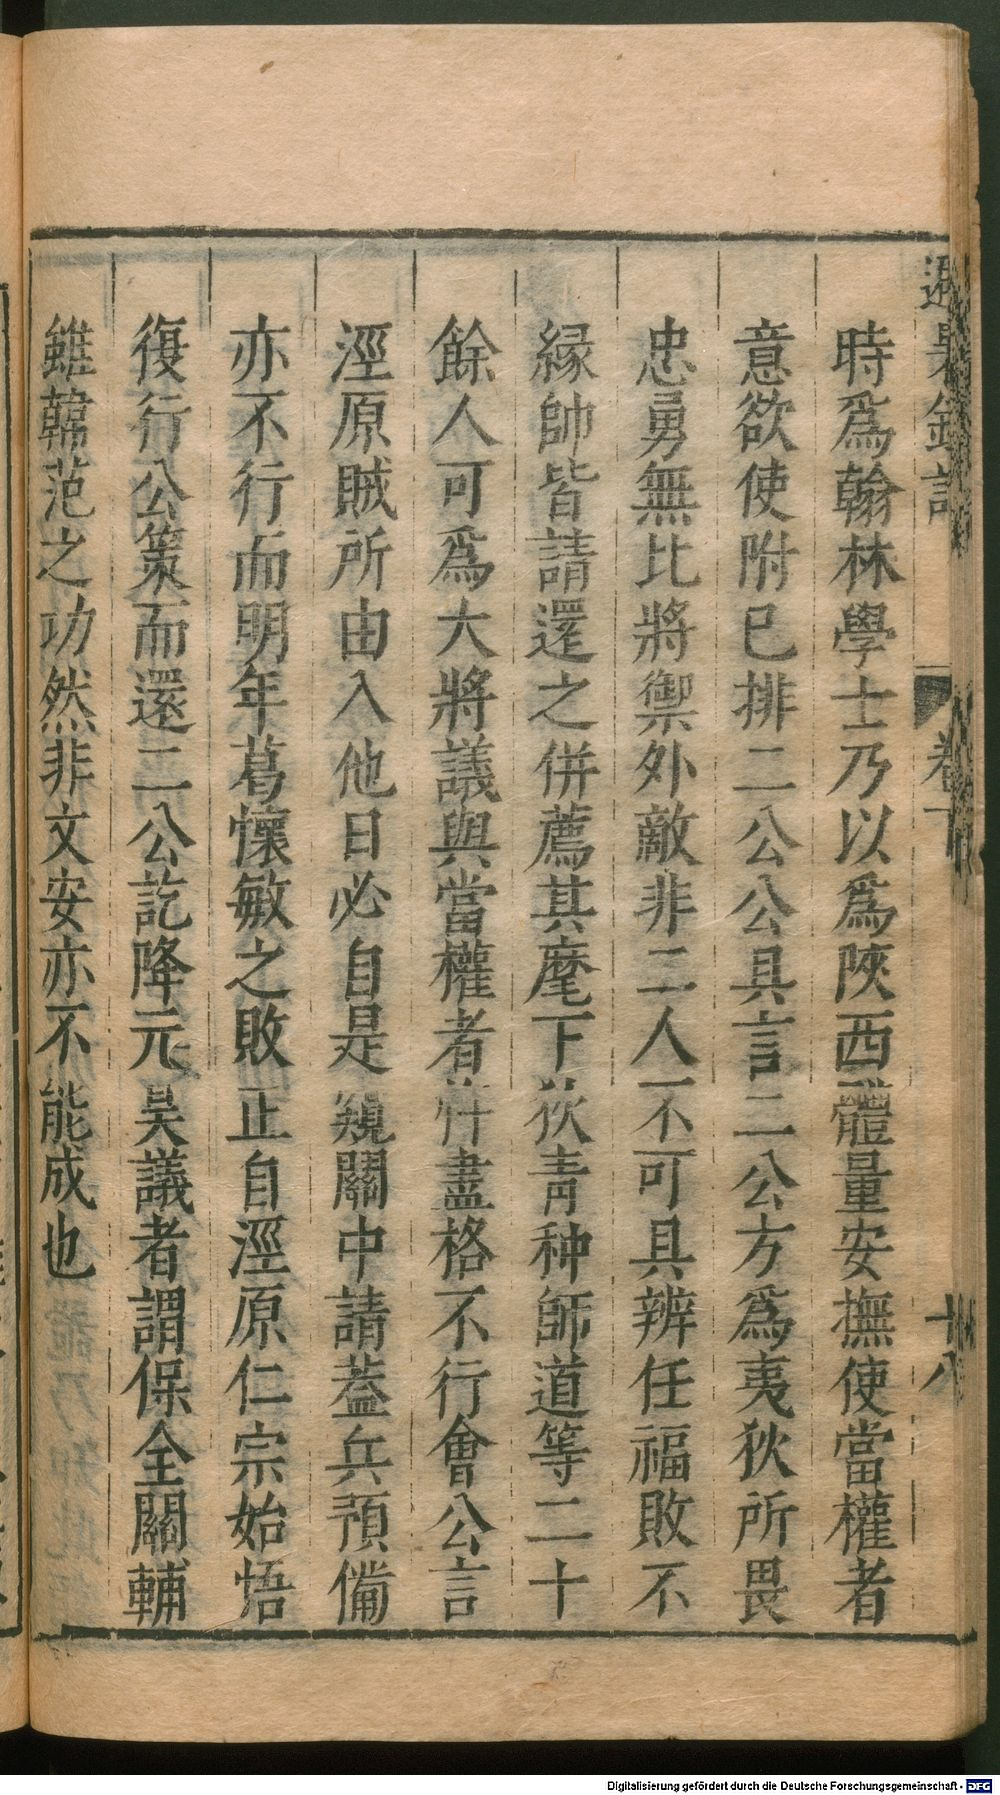 時爲翰林學士乃以爲陝西體量安撫使當權者
意欲使附已排二公公具言二公方爲夷狄所畏
忠勇無比將禦外敵非二人不可具辨任福敗不
縁帥皆請還之併薦其麾下狄青种師道等二十
餘人可爲大將議與當權者忤盡格不行會公言
涇原賊所由入他日必自是窺關中請葢兵預備
亦不行而明年葛懷敏之敗正自涇原仁宗始悟
復行公策而還二公訖降元昊議者謂保全關輔
雖韓范之功然非文安亦不能成也
卷下
十八
Digitalisierung gefördert durch die Deutsche Forschungsgemeinschaft - DFG